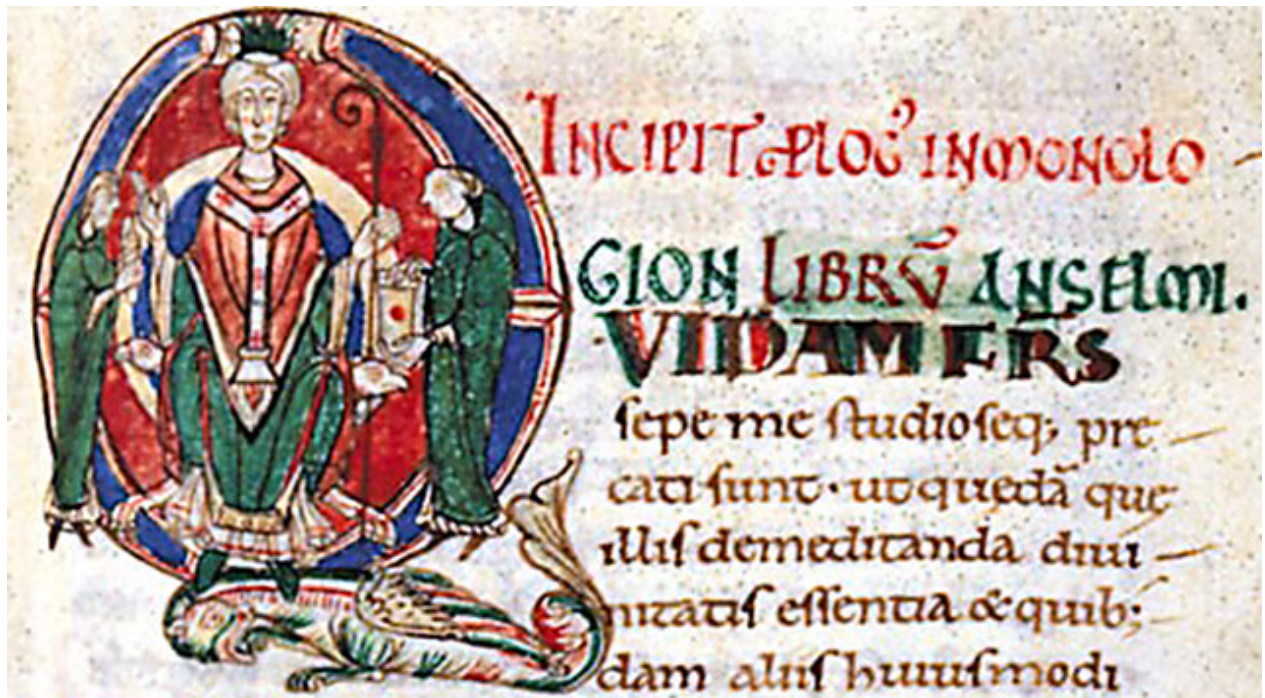 INCIPIT PLOG' IN MONOLO
GION LIBRŪ ANSELMI.
QVIDAM FR̄S
sepe me studioseq; pre
cati sunt. ut quędā quę
illis de meditanda divi
nitatis essentia & quib;
dam aliis huiusmodi